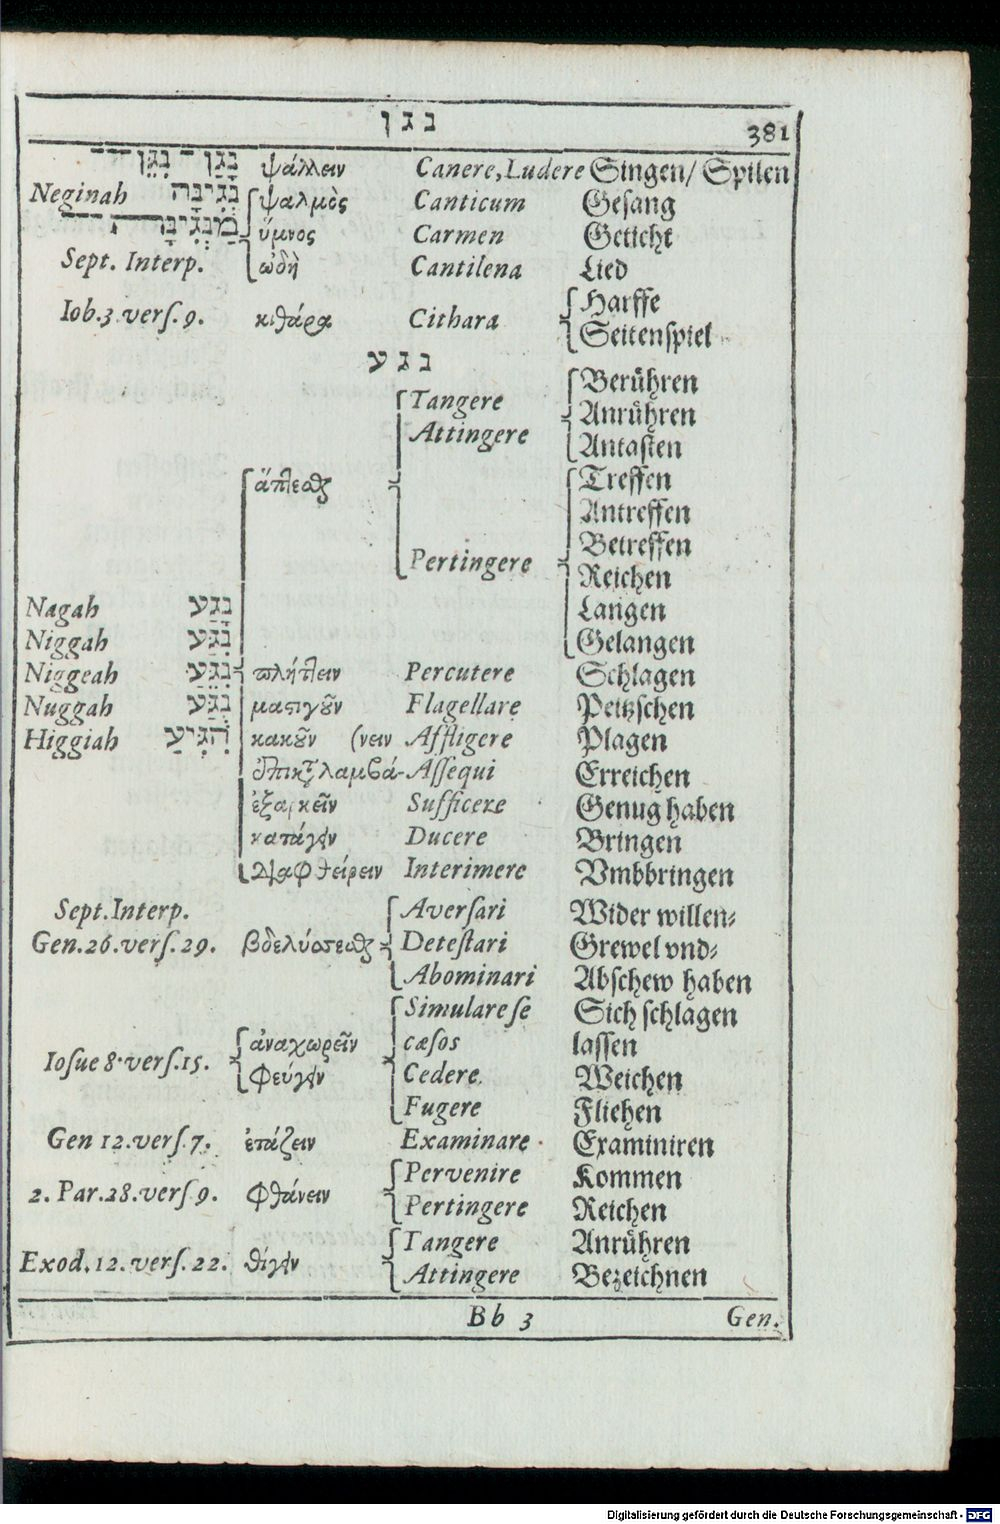 נ ג ן 381
נָגַן ־ נִגֵּן ־־ ψάλλειν Canere, Ludere Singen/ Spilen
Neginah נְגִינָה ψαλμὸς Canticum Gesang
מַנְגִּינָה ὕμνος Carmen Geticht
Sept. Interp. ᾠδὴ Cantilena Lied
Harffe
Iob. 3. verſ. 9. κιθάρα Cithara
Seitenſpiel
נ ג ע
Berühren
Tangere
Anrühren
Attingere
Antaſten
ἅπτεσθαι Treffen
Antreffen
Betreffen
Pertingere
Reichen
Nagah נָגַע Langen
Niggah נִגַּע Gelangen
Niggeah נִגֵּעַ πλήττειν Percutere Schlagen
Nuggah נֻגַּע μαστιγοῦν Flagellare Peitzſchen
Higgiah הִגִּיעַ κακοῦν (νειν Affligere Plagen
ἐπικαταλαμβά- Aſſequi Erreichen
ἐξαρκεῖν Sufficere Genug haben
κατάγειν Ducere Bringen
διαφθείρειν Interimere Vmbbringen
Sept. Interp. Averſari Wider willen⸗
Gen. 26. verſ. 29. βδελύσσεσθαι Deteſtari Grewel vnd⸗
Abominari Abſchew haben
Simulare ſe Sich ſchlagen
ἀναχωρεῖν cæſos laſſen
Ioſue 8. verſ. 15.
φεύγειν Cedere. Weichen
Fugere Fliehen
Gen 12. verſ. 7. ἐτάζειν Examinare Examiniren
Pervenire Kommen
2. Par. 28. verſ 9. φθάνειν
Pertingere Reichen
Tangere Anrühren
Exod. 12. verſ. 22. θίγειν
Attingere Bezeichnen
Bb 3 Gen.
Digitalisierung gefördert durch die Deutsche Forschungsgemeinschaft - DFG